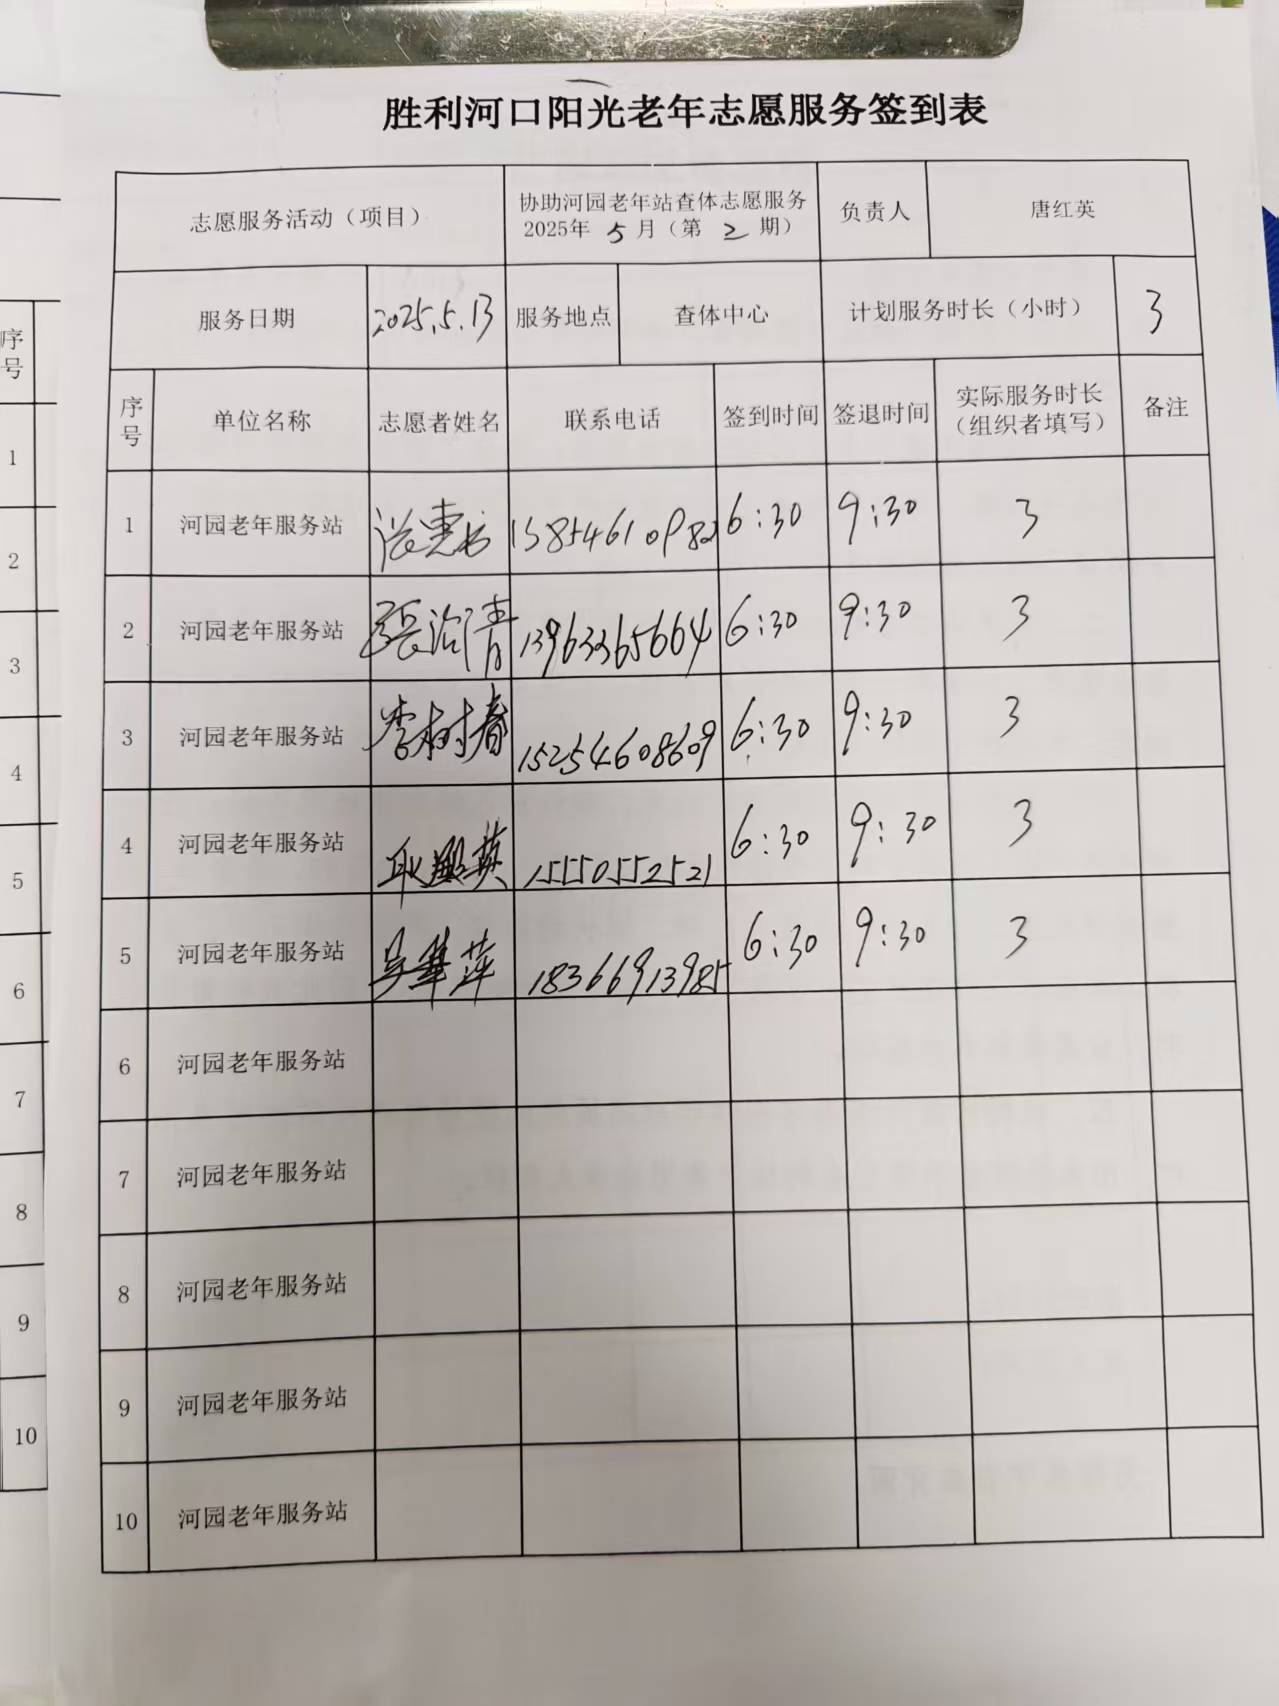 胜利河口阳光老年志愿服务签到表
志愿服务活动（项目） 协助河园老年站查体志愿服务 2025年 5 月（第 2 期） 负责人 唐红英
服务日期 2025.5.13 服务地点 查体中心 计划服务时长（小时） 3
序号 单位名称 志愿者姓名 联系电话 签到时间 签退时间 实际服务时长（组织者填写） 备注
1 河园老年服务站 6:30 9:30 3
2 河园老年服务站 张治清 13963365664 6:30 9:30 3
3 河园老年服务站 李树春 15254608609 6:30 9:30 3
4 河园老年服务站 15550552521 6:30 9:30 3
5 河园老年服务站 吴華萍 18366913985 6:30 9:30 3
6 河园老年服务站
7 河园老年服务站
8 河园老年服务站
9 河园老年服务站
10 河园老年服务站
序号
1
2
3
4
5
6
7
8
9
10